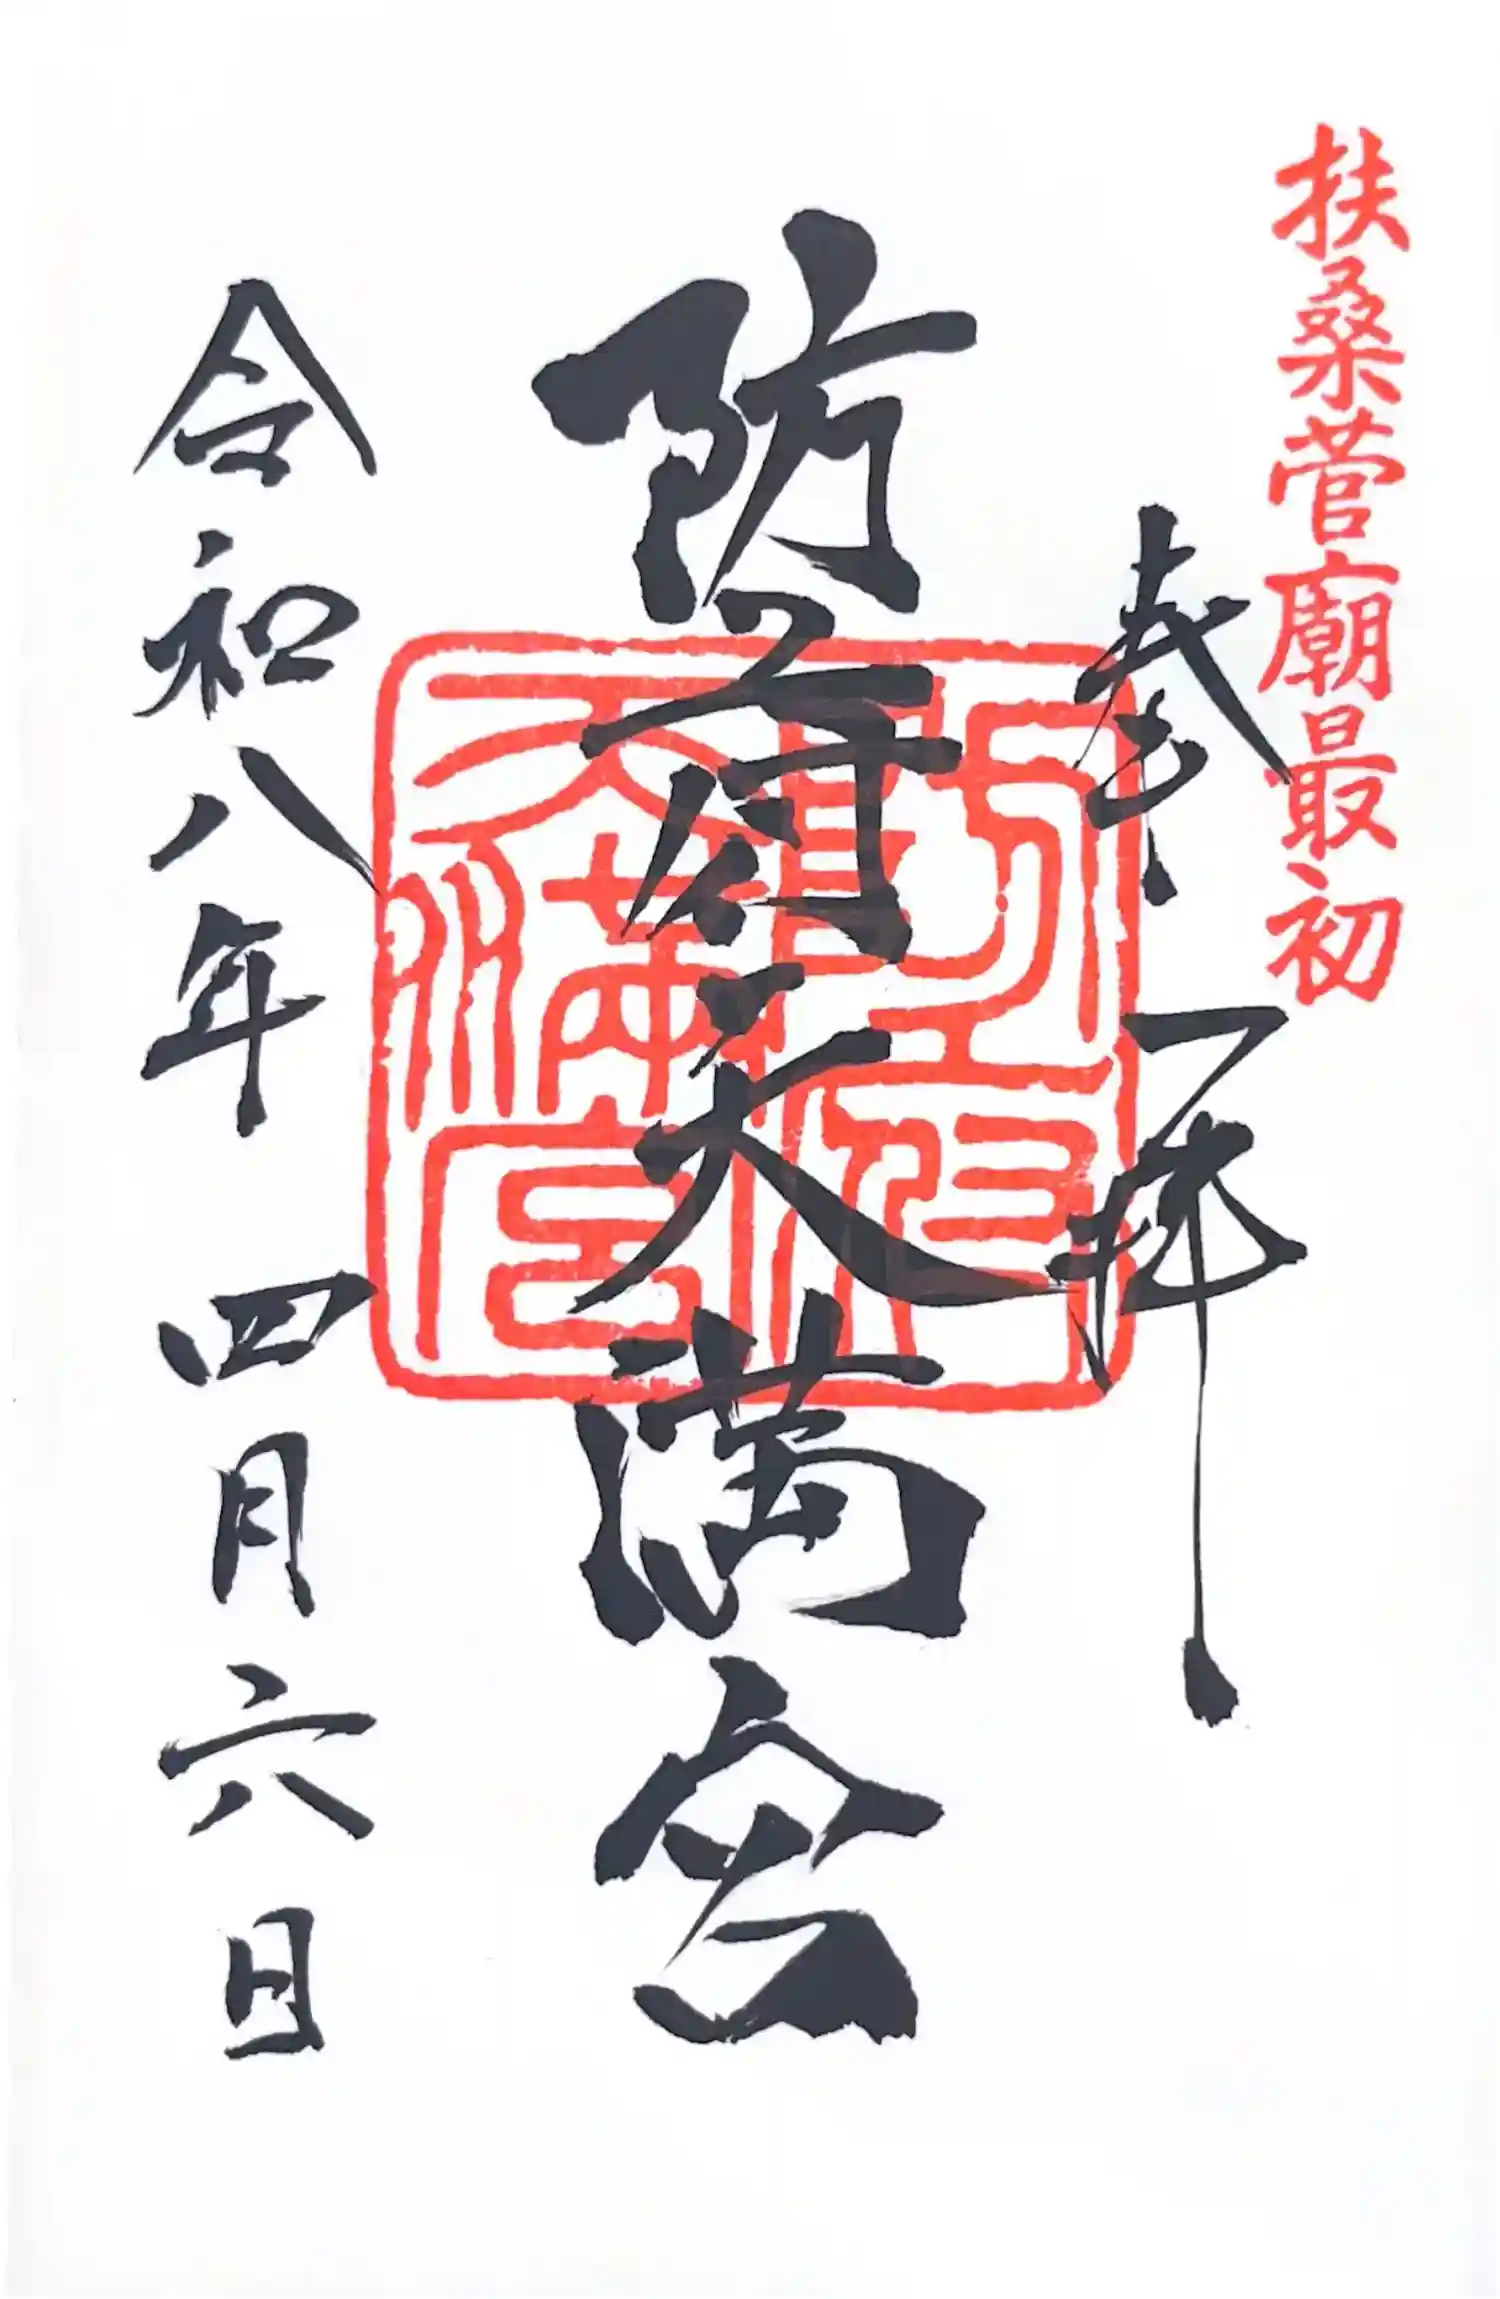 扶桑菅廟最初
奉拝
防府天満宮
防府天満宮
令和八年四月六日